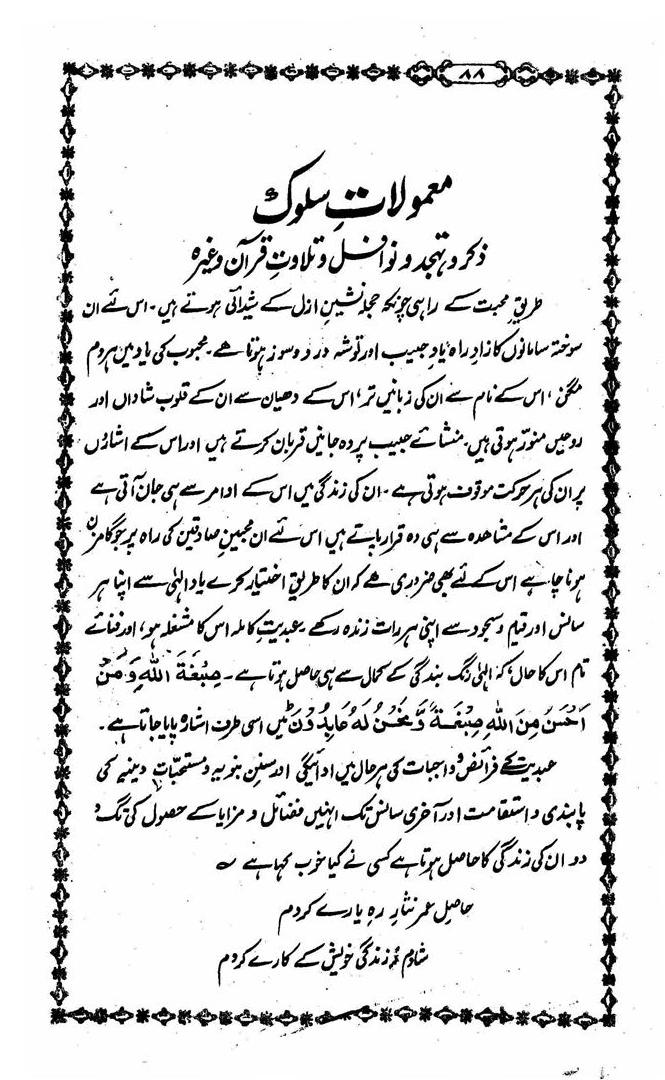 ۸۸
معمولاتِ سلوک
ذکر و تہجد و نوافل و تلاوتِ قرآن وغیرہ
طریقِ محبت کے راہی چونکہ حجلہ نشینِ ازل کے شیدائی ہوتے ہیں۔ اس لئے ان
سوختہ سامانوں کا زادِ راہ یادِ حبیب اور توشہ درد و سوز ہوتا ہے۔ محبوب کی یاد میں ہر دم
مگن، اس کے نام سے ان کی زبانیں تر، اس کے دھیان سے ان کے قلوب شاداں اور
روحیں منوّر ہوتی ہیں۔ منشائے حبیب پر وہ جانیں قربان کرتے ہیں اور اس کے اشاروں
پر ان کی ہر حرکت موقوف ہوتی ہے۔ ان کی زندگی میں اس کے اوامر سے ہی جان آتی ہے
اور اس کے مشاھدہ سے ہی وہ قرار پاتے ہیں اس لئے ان محبینِ صادقین کی راہ پر جو گامزن
ہونا چاہے اس کے لئے بھی ضروری ھے کہ ان کا طریق اختیار کرے یادِ الٰہی سے اپنا ہر
سانس اور قیام و سجود سے اپنی ہر رات زندہ رکھے۔ عبدیتِ کاملہ اس کا مشغلہ ہو، اور فنائے
تام اس کا حال، کہ الٰہی رنگ بندگی کے کمال سے ہی حاصل ہوتا ہے۔ صِبْغَةَ اللّٰهِ وَمَنْ
اَحْسَنُ مِنَ اللّٰهِ صِبْغَةً وَّنَحْنُ لَهٗ عَابِدُوْنَ میں اسی طرف اشارہ پایا جاتا ہے۔
عبدیت کے فرائض و واجبات کی ہر حال میں ادائیگی اور سننِ نبویہ و مستحباتِ دینیہ کی
پابندی و استقامت اور آخری سانس تک انہیں فضائل و مزایا کے حصول کی تگ و
دو ان کی زندگی کا حاصل ہوتا ہے کسی نے کیا خوب کہا ہے ؎
حاصلِ عمر نثارِ رہِ یارے کردم
شادم از زندگی خویش کے کارے کردم